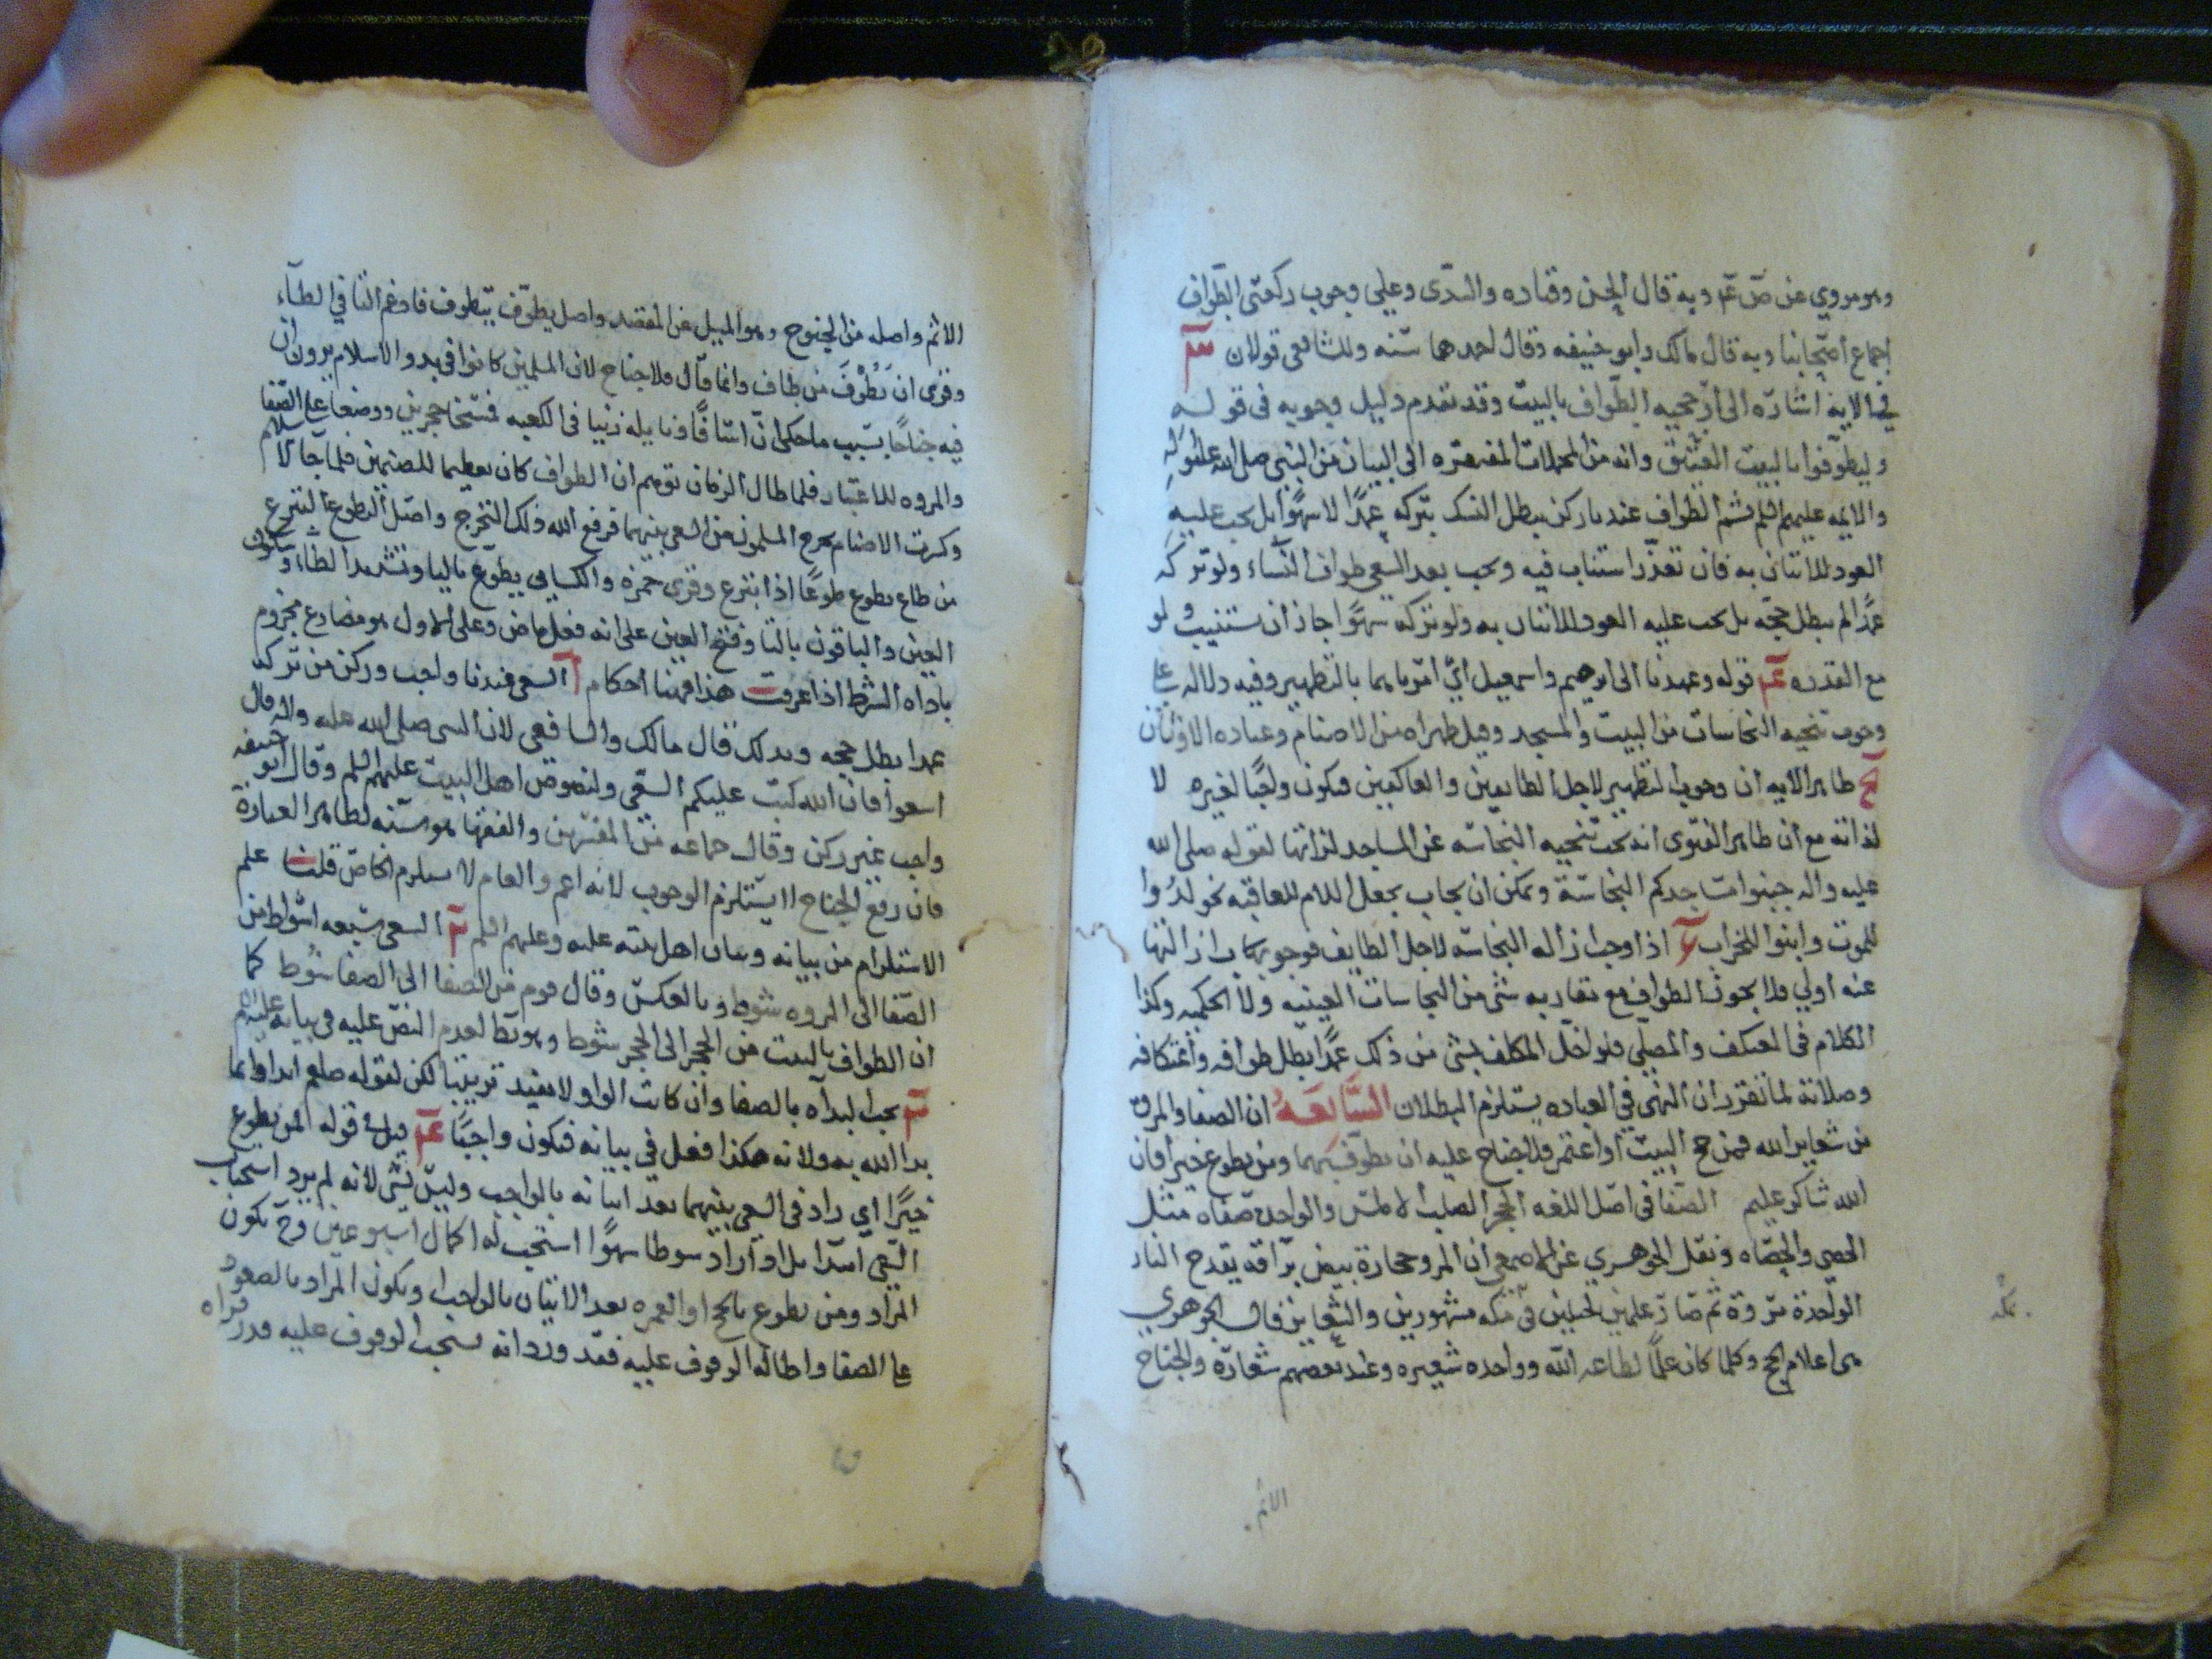 وهو مروي عن ص عم وبه قال الحسن وقتاده والسدى وعلي وجوب ركعتى الطواف
اجماع اصحابنا وبه قال مالك وابو حنيفه وقال احدهما سنه وللشافعى قولان
في الايه اشارة الى ارجحيه الطواف بالبيت وقد تقدم دليل وجوبه فى قوله
وليطوفوا بالبيت العتيق وانه من المجملات المفتقره الى البيان من النبى صلى الله عليه واله
والايمه عليهم السلم ثم الطواف عندنا ركن يبطل النسك بتركه عمدًا لا سهوًا بل يجب عليه
العود للاتيان به فان تعذر استناب فيه ويجب بعد السعي طواف النساء ولو تركه
عمدًا لم يبطل حجه بل يجب عليه العود للاتيان به ولو تركه سهوًا جاز ان يستنيب ولو
مع القدره قوله وعهدنا الى ابرهيم واسمعيل أيّ امرناهما بالتطهير وفيه دلاله على
وجوب تنحيه النجاسات من البيت والمسجد وقيل طهراه من الاصنام وعباده الاوثان
ظاهر الايه ان وجوب التطهير لاجل الطايفين والعاكفين فيكون واجبًا لغيره لا
لذاته مع ان ظاهر الفتوى انه يجب تنحيه النجاسه عن المساجد لذاتها لقوله صلى الله
عليه واله جنبوا مساجدكم النجاسة ويمكن ان يجاب بجعل اللام للعاقبه نحو لدُوا
للموت وابنوا للخراب اذا وجب ازاله النجاسه لاجل الطايف فوجوبها بازالتها
عنه أولي فلا يجوز الطواف مع تقاربه شئ من النجاسات العينيه ولا الحكميه وكذا
الكلام فى المعتكف والمصلّي فلو اخلّ المكلف بشى من ذلك عمدًا بطل طوافه واعتكافه
وصلاته لما تقرر ان النهى في العباده يستلزم البطلان السَّابعَهُ ان الصفا والمروة
من شعاير الله فمن حج البيت أو اعتمر فلا جناح عليه ان يطوف بهما ومن تطوع خيرا فان
الله شاكر عليم الصفا فى اصل اللغه الحجر الصلب الاملس والواحده صفاه مثل
الحصى والحصاه ونقل الجوهري عن الاصمعي ان المرو حجارة بيض براقه يقدح النار
الواحدة مروة ثم صارا علمين لجبلين فى مكه مشهورين والشعاير قال الجوهري
هى اعلام الحج وكلما كان علمًا لطاعه الله وواحده شعيره وعند بعضهم شعارة والجناح
بمكه
الاثم
الاثم واصله من الجنوح وهو الميل عن المقصد واصل يطوّف يتطوف فادغم التا في الطآء
وقرى ان يَطُوْفَ من طاف وانما قآل فلا جناح لان المسلمين كانوا فى بدو الاسلام يرون ان
فيه جناحًا بسبب ما حكى ان اسافًا ونايله زنيا فى الكعبه فمسخا حجرين ووضعا على الصفا
والمروه للاعتبار فلما طال الزمان توهم ان الطواف كان تعظيما للصنمين فلما جآ الاسلام
وكسرت الاصنام تحرج المسلمون من السعي بينهما فرفع الله ذلك التحرج واصل التطوع التبرع
من طاع يطوع طوعًا اذا تبرع وقرى حمزه والكسايي يطوع باليا وتشديد الطآء وسكون
العين والباقون بالتا وفتح العين على انه فعل ماض وعلى الاول هو مضارع مجزوم
باداه الشرط اذا عرفت هذا فههنا احكام آ السعى عندنا واجب وركن من تركه
عمدا بطل حجه وبذلك قال مالك والشافعى لان النبى صلى الله عليه واله قال
اسعوا فان الله كتب عليكم السعي ولنصوص اهل البيت عليهم السلم وقال ابو حنيفه
واجب غير ركن وقال جماعه من المفسرين والفقها هو سنه لظاهر العبارة
فان رفع الجناح لا يستلزم الوجوب لانه اعم والعام لا يستلزم الخاص قلنا علم
الاستلزام من بيانه وبيان اهل بيته عليه وعليهم السلم السعى سبعه اشواط من
الصفا الى المروه شوط وبالعكس وقال قوم من الصفا الى الصفا شوط كما
ان الطواف بالبيت من الحجر الى الحجر شوط وهو بط لعدم النص عليه في بيانه عليه السلم
يجب البدآه بالصفا وان كانت الواو لا يفيد ترتيبا لكن لقوله صلعم ابداوا بما
بدا الله به ولانه هكذا فعل في بيانه فتكون واجبًا قيل في قوله فمن تطوع
خيرًا أي زاد فى السعي بينهما بعد اتيانه بالواجب وليس بشى لانه لم يرد استحباب
السّعي ابتدا بل لو زاد شوطا سهوًا استحب له اكمال اسبوعين وح يكون
المراد ومن تطوع بالحج او العمره بعد الاتيان بالواجب ويكون المراد بالصعود
على الصفا واطاله الوقوف عليه فقد ورد انه يستحب الوقوف عليه قدر قراه